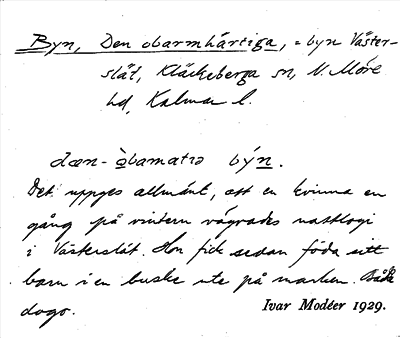 Byn, Den obarmhärtiga, = byn Väster-
slät, Kläckeberga sn, N. Möre
hd, Kalmar l.
dæn- òbamatıɔ býn.
Det uppges allmänt, att en kvinna en
gång på vintern vägrades nattlogi
i Västerslät. Hon fick sedan föda sitt
barn i en buske ute på marken. Både
dogo.
Ivar Modéer 1929.